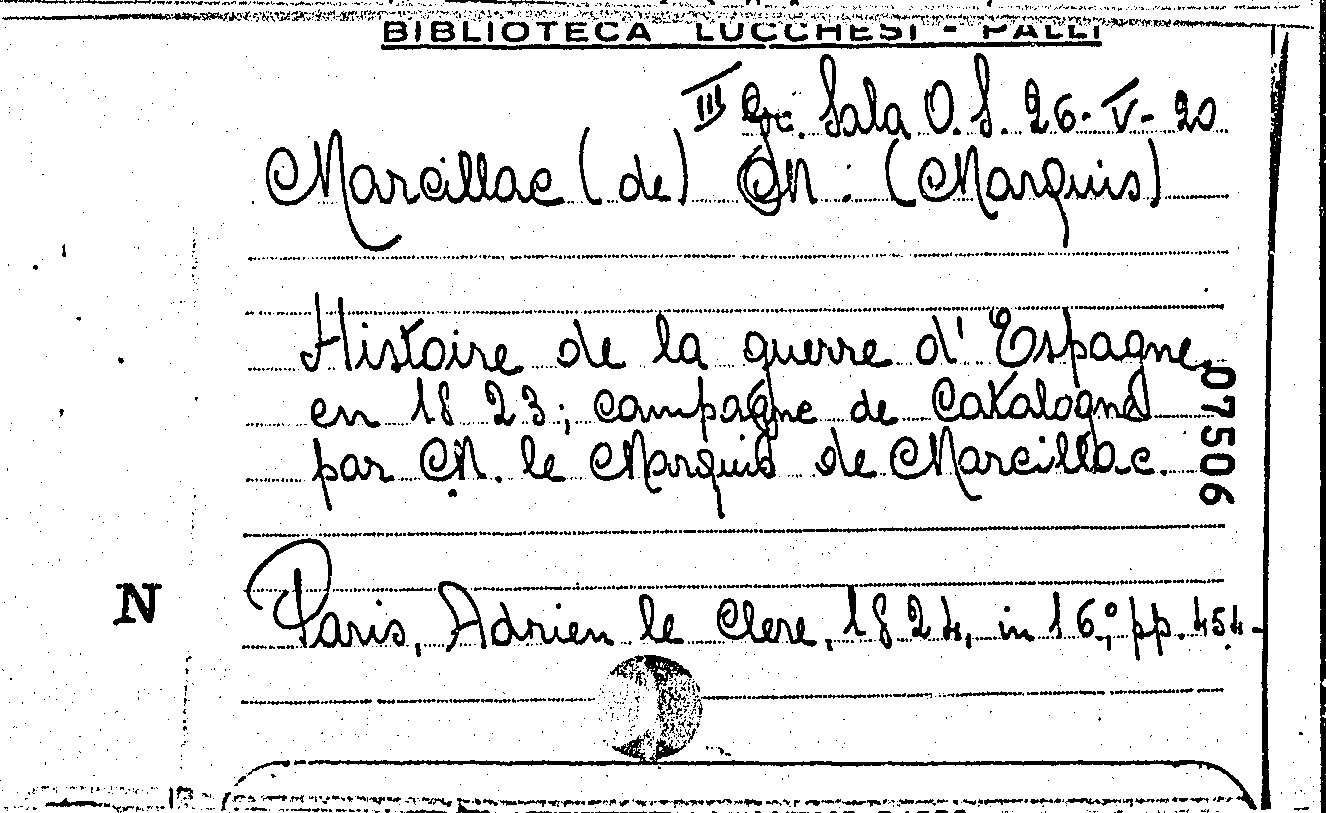 BIBLIOTECA LUCCHESI - PALLI
III Sala O. S. 26-V-20
Marcillac (de) M. (Marquis)
Histoire de la guerre d'Espagne
en 1823; campagne de Catalogne
par M. le Marquis de Marcillac.
07506
N
Paris, Adrien le Clere, 1824, in 16°, pp. 454-